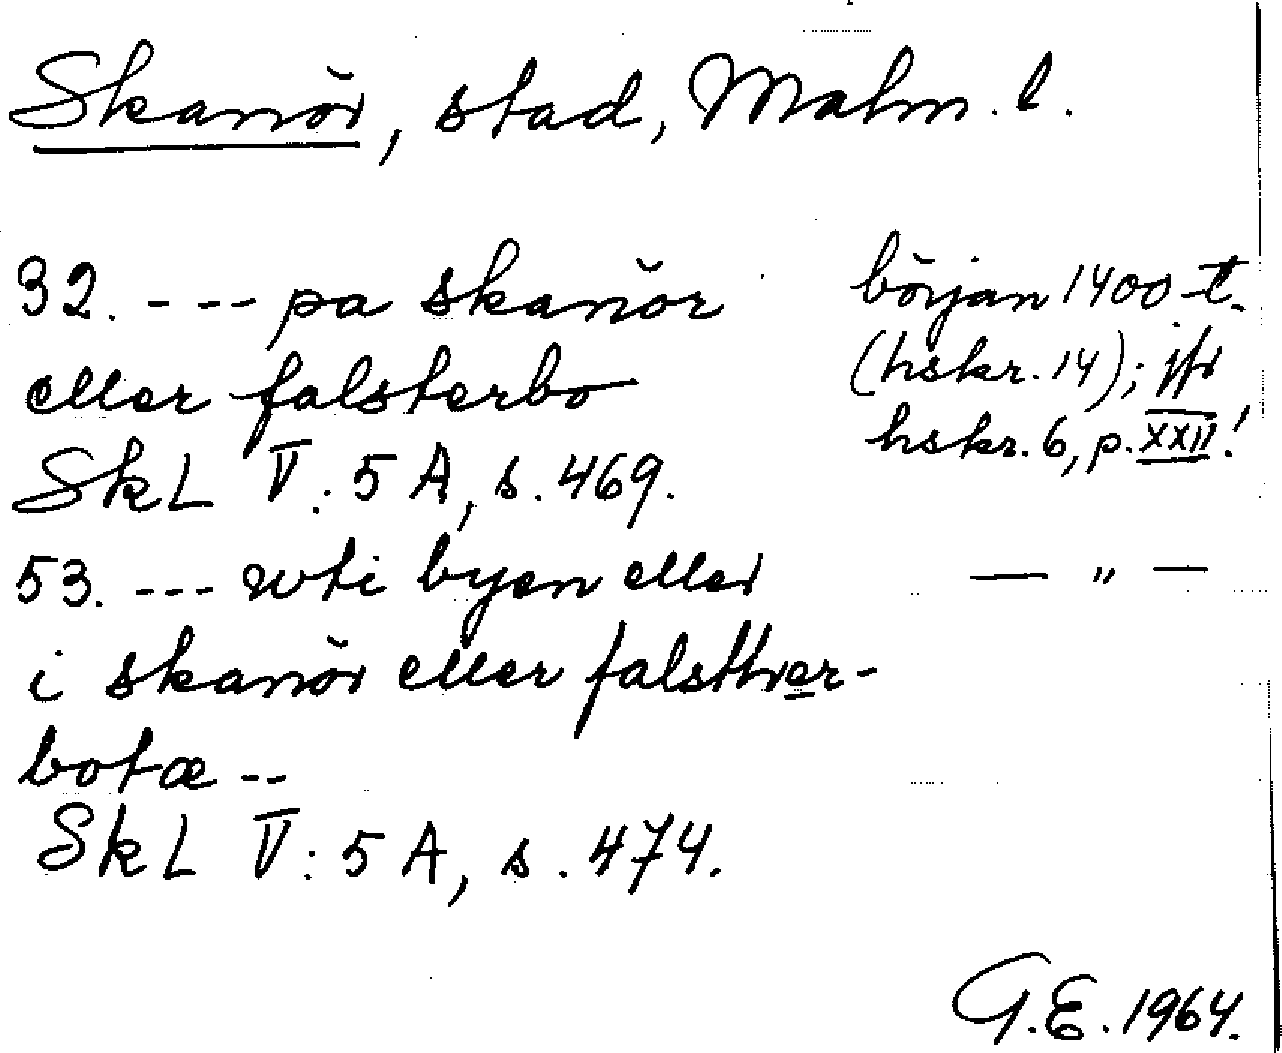 Skanör, stad, Malm. l.
32. --- pa skanör
eller falsterbo
SkL V: 5 A, s. 469.
början 1400-t.
(hskr. 14); jfr
hskr. 6, p. XXII!
53. --- wti byen eller
i skanör eller falsthrer-
botæ --
SkL V: 5 A, s. 474.
— " —
G.E. 1964.